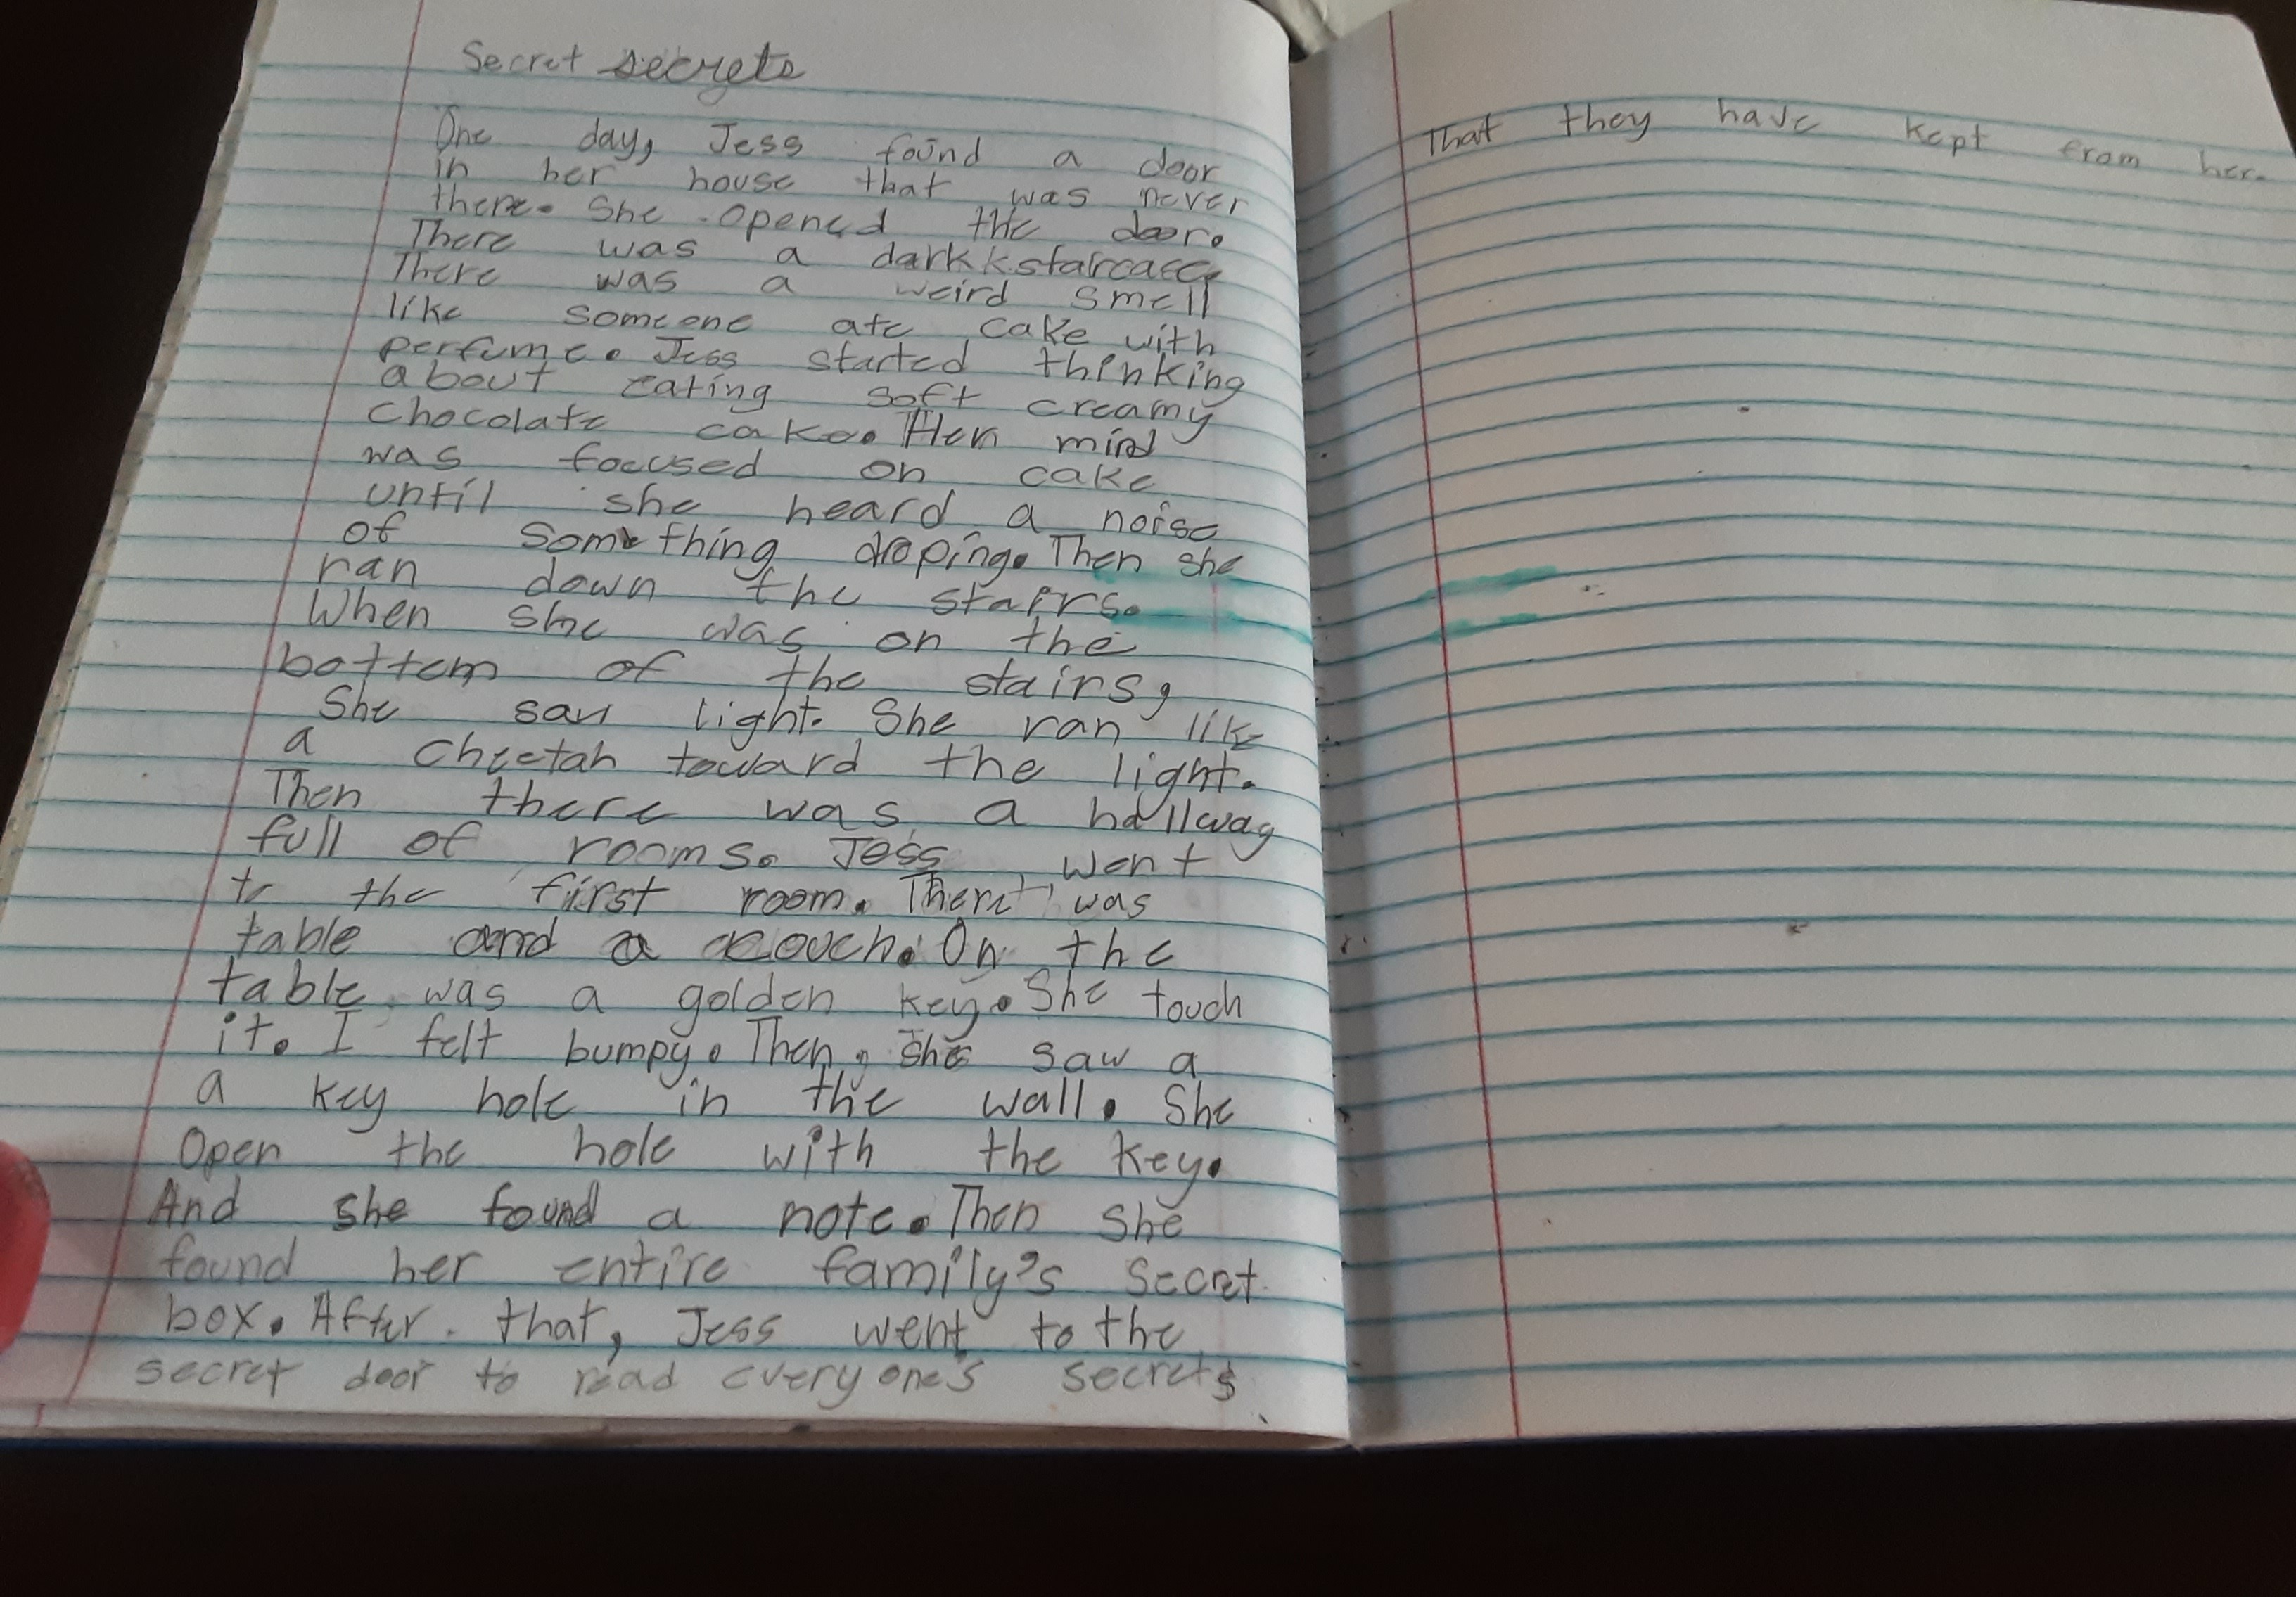 Secret secrets
One day, Jess found a door
in her house that was never
there. She opened the door.
There was a dark staircase
There was a weird smell
like someone ate cake with
perfume. Jess started thinking
about eating soft creamy
chocolate cake. Her mind
was focused on cake
until she heard a noise
of something droping. Then she
ran down the stairs.
When she was on the
bottom of the stairs,
She saw light. She ran like
a cheetah toward the light.
Then there was a hallway
full of rooms. Jess went
to the first room. There was
table and a couch. On the
table was a golden key. She touch
it. I felt bumpy. Then, she saw a
a key hole in the wall. She
Open the hole with the key.
And she found a note. Then she
found her entire family's secret
box. After that, Jess went to the
secret door to read everyone's secrets
That they have kept from her.